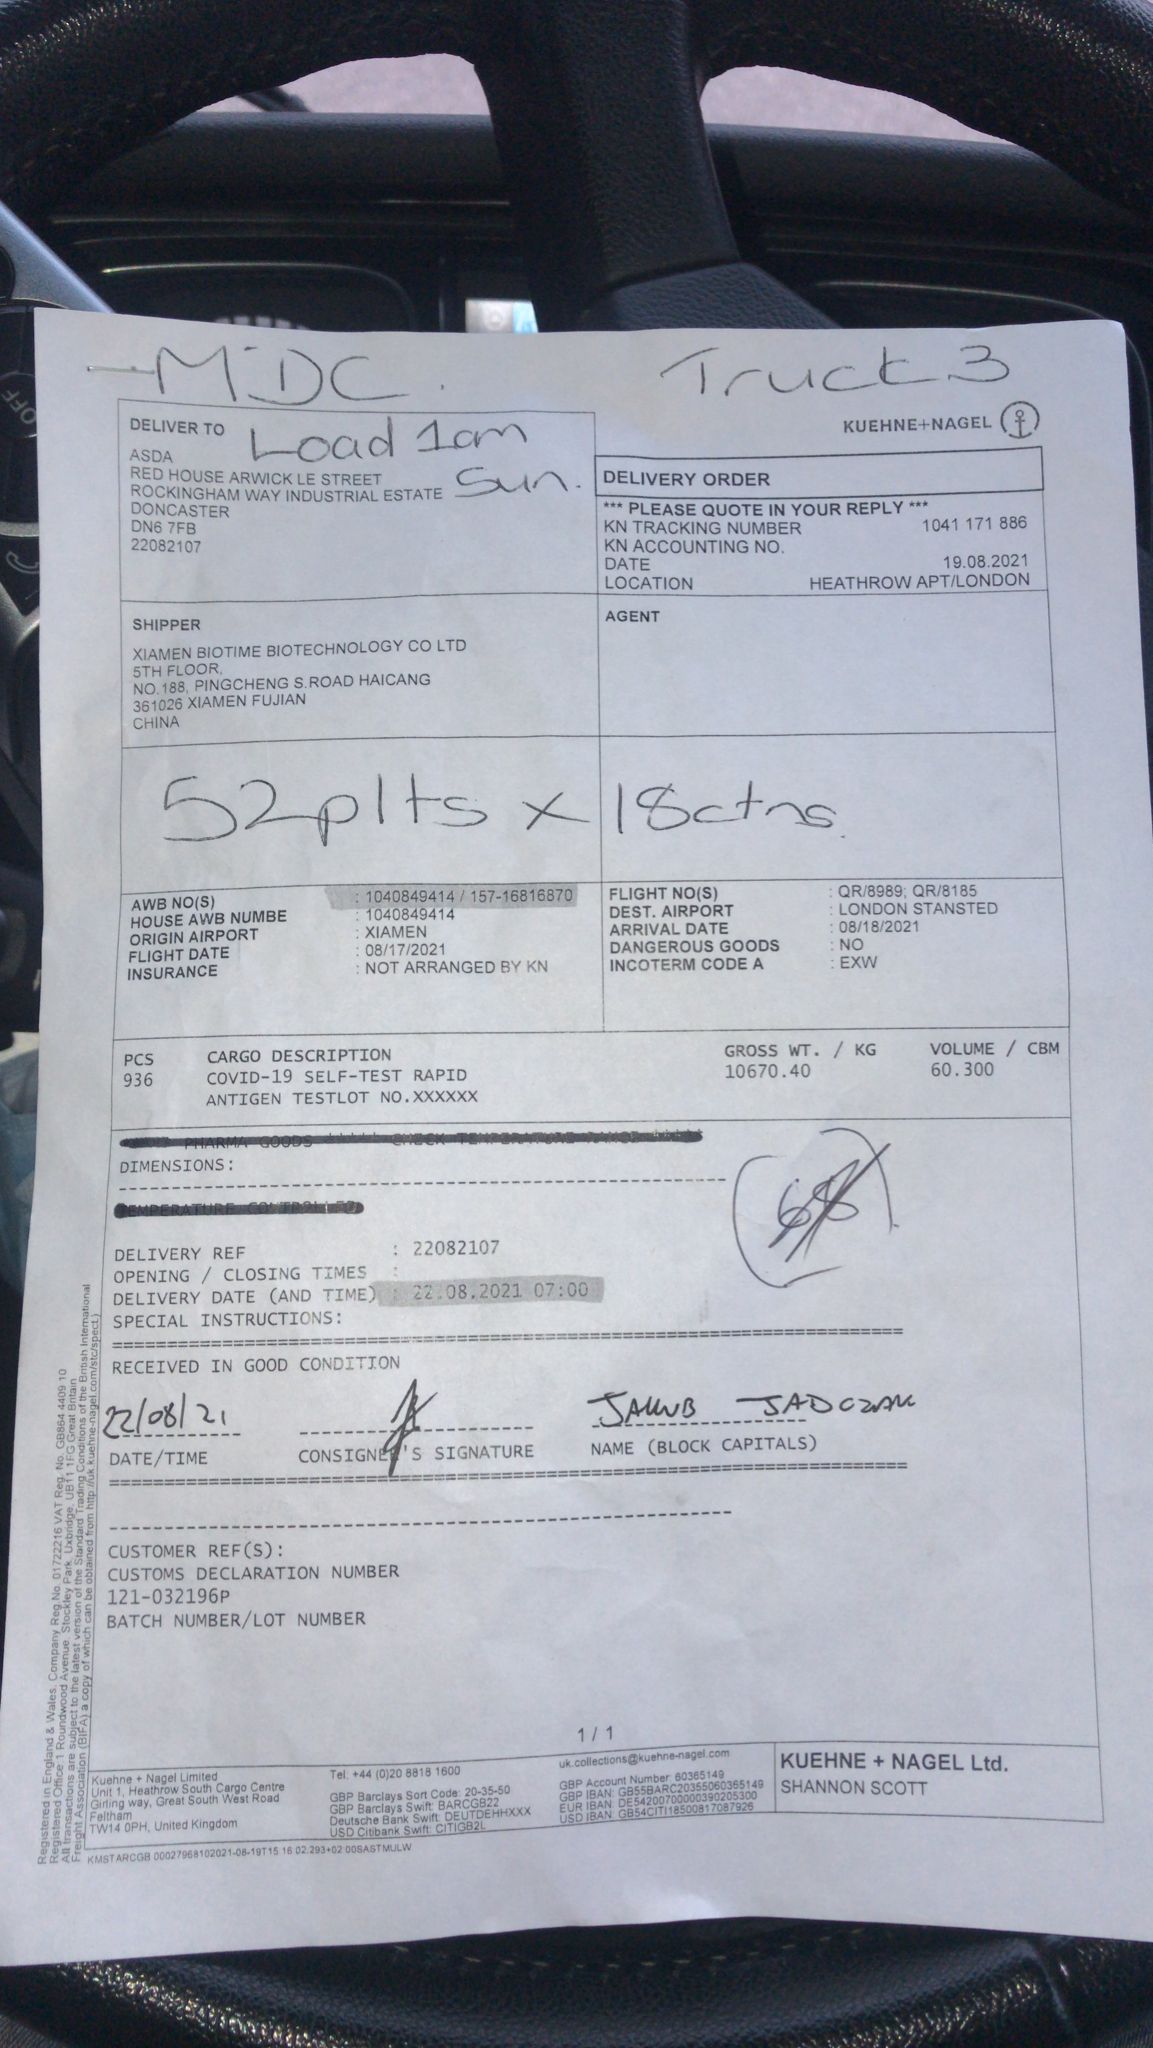 MDC. Truck 3
DELIVER TO
Load 1am
Sun.
ASDA
RED HOUSE ARWICK LE STREET
ROCKINGHAM WAY INDUSTRIAL ESTATE
DONCASTER
DN6 7FB
22082107
KUEHNE+NAGEL
DELIVERY ORDER
*** PLEASE QUOTE IN YOUR REPLY ***
KN TRACKING NUMBER 1041 171 886
KN ACCOUNTING NO.
DATE 19.08.2021
LOCATION HEATHROW APT/LONDON
SHIPPER
XIAMEN BIOTIME BIOTECHNOLOGY CO LTD
5TH FLOOR,
NO.188, PINGCHENG S.ROAD HAICANG
361026 XIAMEN FUJIAN
CHINA
AGENT
52plts x 18ctns.
AWB NO(S) : 1040849414 / 157-16816870
HOUSE AWB NUMBE : 1040849414
ORIGIN AIRPORT : XIAMEN
FLIGHT DATE : 08/17/2021
INSURANCE : NOT ARRANGED BY KN
FLIGHT NO(S) : QR/8989; QR/8185
DEST. AIRPORT : LONDON STANSTED
ARRIVAL DATE : 08/18/2021
DANGEROUS GOODS : NO
INCOTERM CODE A : EXW
PCS CARGO DESCRIPTION GROSS WT. / KG VOLUME / CBM
936 COVID-19 SELF-TEST RAPID 10670.40 60.300
ANTIGEN TESTLOT NO.XXXXXX
PHARMA GOODS ***** CHECK TEMPERATURE RANGE *****
DIMENSIONS:
TEMPERATURE CONTROLLED
68
DELIVERY REF : 22082107
OPENING / CLOSING TIMES :
DELIVERY DATE (AND TIME) : 22.08.2021 07:00
SPECIAL INSTRUCTIONS:
RECEIVED IN GOOD CONDITION
22/08/21 JAKUB JADCZAK
DATE/TIME CONSIGNEE'S SIGNATURE NAME (BLOCK CAPITALS)
CUSTOMER REF(S):
CUSTOMS DECLARATION NUMBER
121-032196P
BATCH NUMBER/LOT NUMBER
1 / 1
Kuehne + Nagel Limited
Unit 1, Heathrow South Cargo Centre
Girling way, Great South West Road
Feltham
TW14 0PH, United Kingdom
Tel: +44 (0)20 8818 1600
GBP Barclays Sort Code: 20-35-50
GBP Barclays Swift: BARCGB22
Deutsche Bank Swift: DEUTDEHHXXX
USD Citibank Swift: CITIGB2L
uk.collections@kuehne-nagel.com
GBP Account Number 60365149
GBP IBAN: GB55BARC20355060365149
EUR IBAN: DE54200700000390205300
USD IBAN: GB54CITI18500817087926
KUEHNE + NAGEL Ltd.
SHANNON SCOTT
KMSTARCGB 00027968102021-08-19T15 16 02.293+02:00SASTMULW
Registered in England & Wales, Company Reg.No. 01722216 VAT Reg. No. GB864 4409 10
Registered Office:1 Roundwood Avenue, Stockley Park, Uxbridge, UB11 1FG Great Britain
All transactions are subject to the latest version of the Standard Trading Conditions of the British International
Freight Association (BIFA) a copy of which can be obtained from http://uk.kuehne-nagel.com/stc/spect.)
OFF